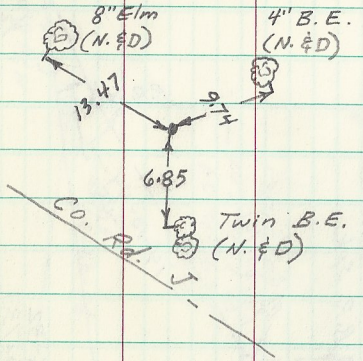 8" Elm
(N. & D)
4" B.E.
(N. & D)
13.47
9.74
6.85
Twin B.E.
(N. & D)
Co. Rd. J